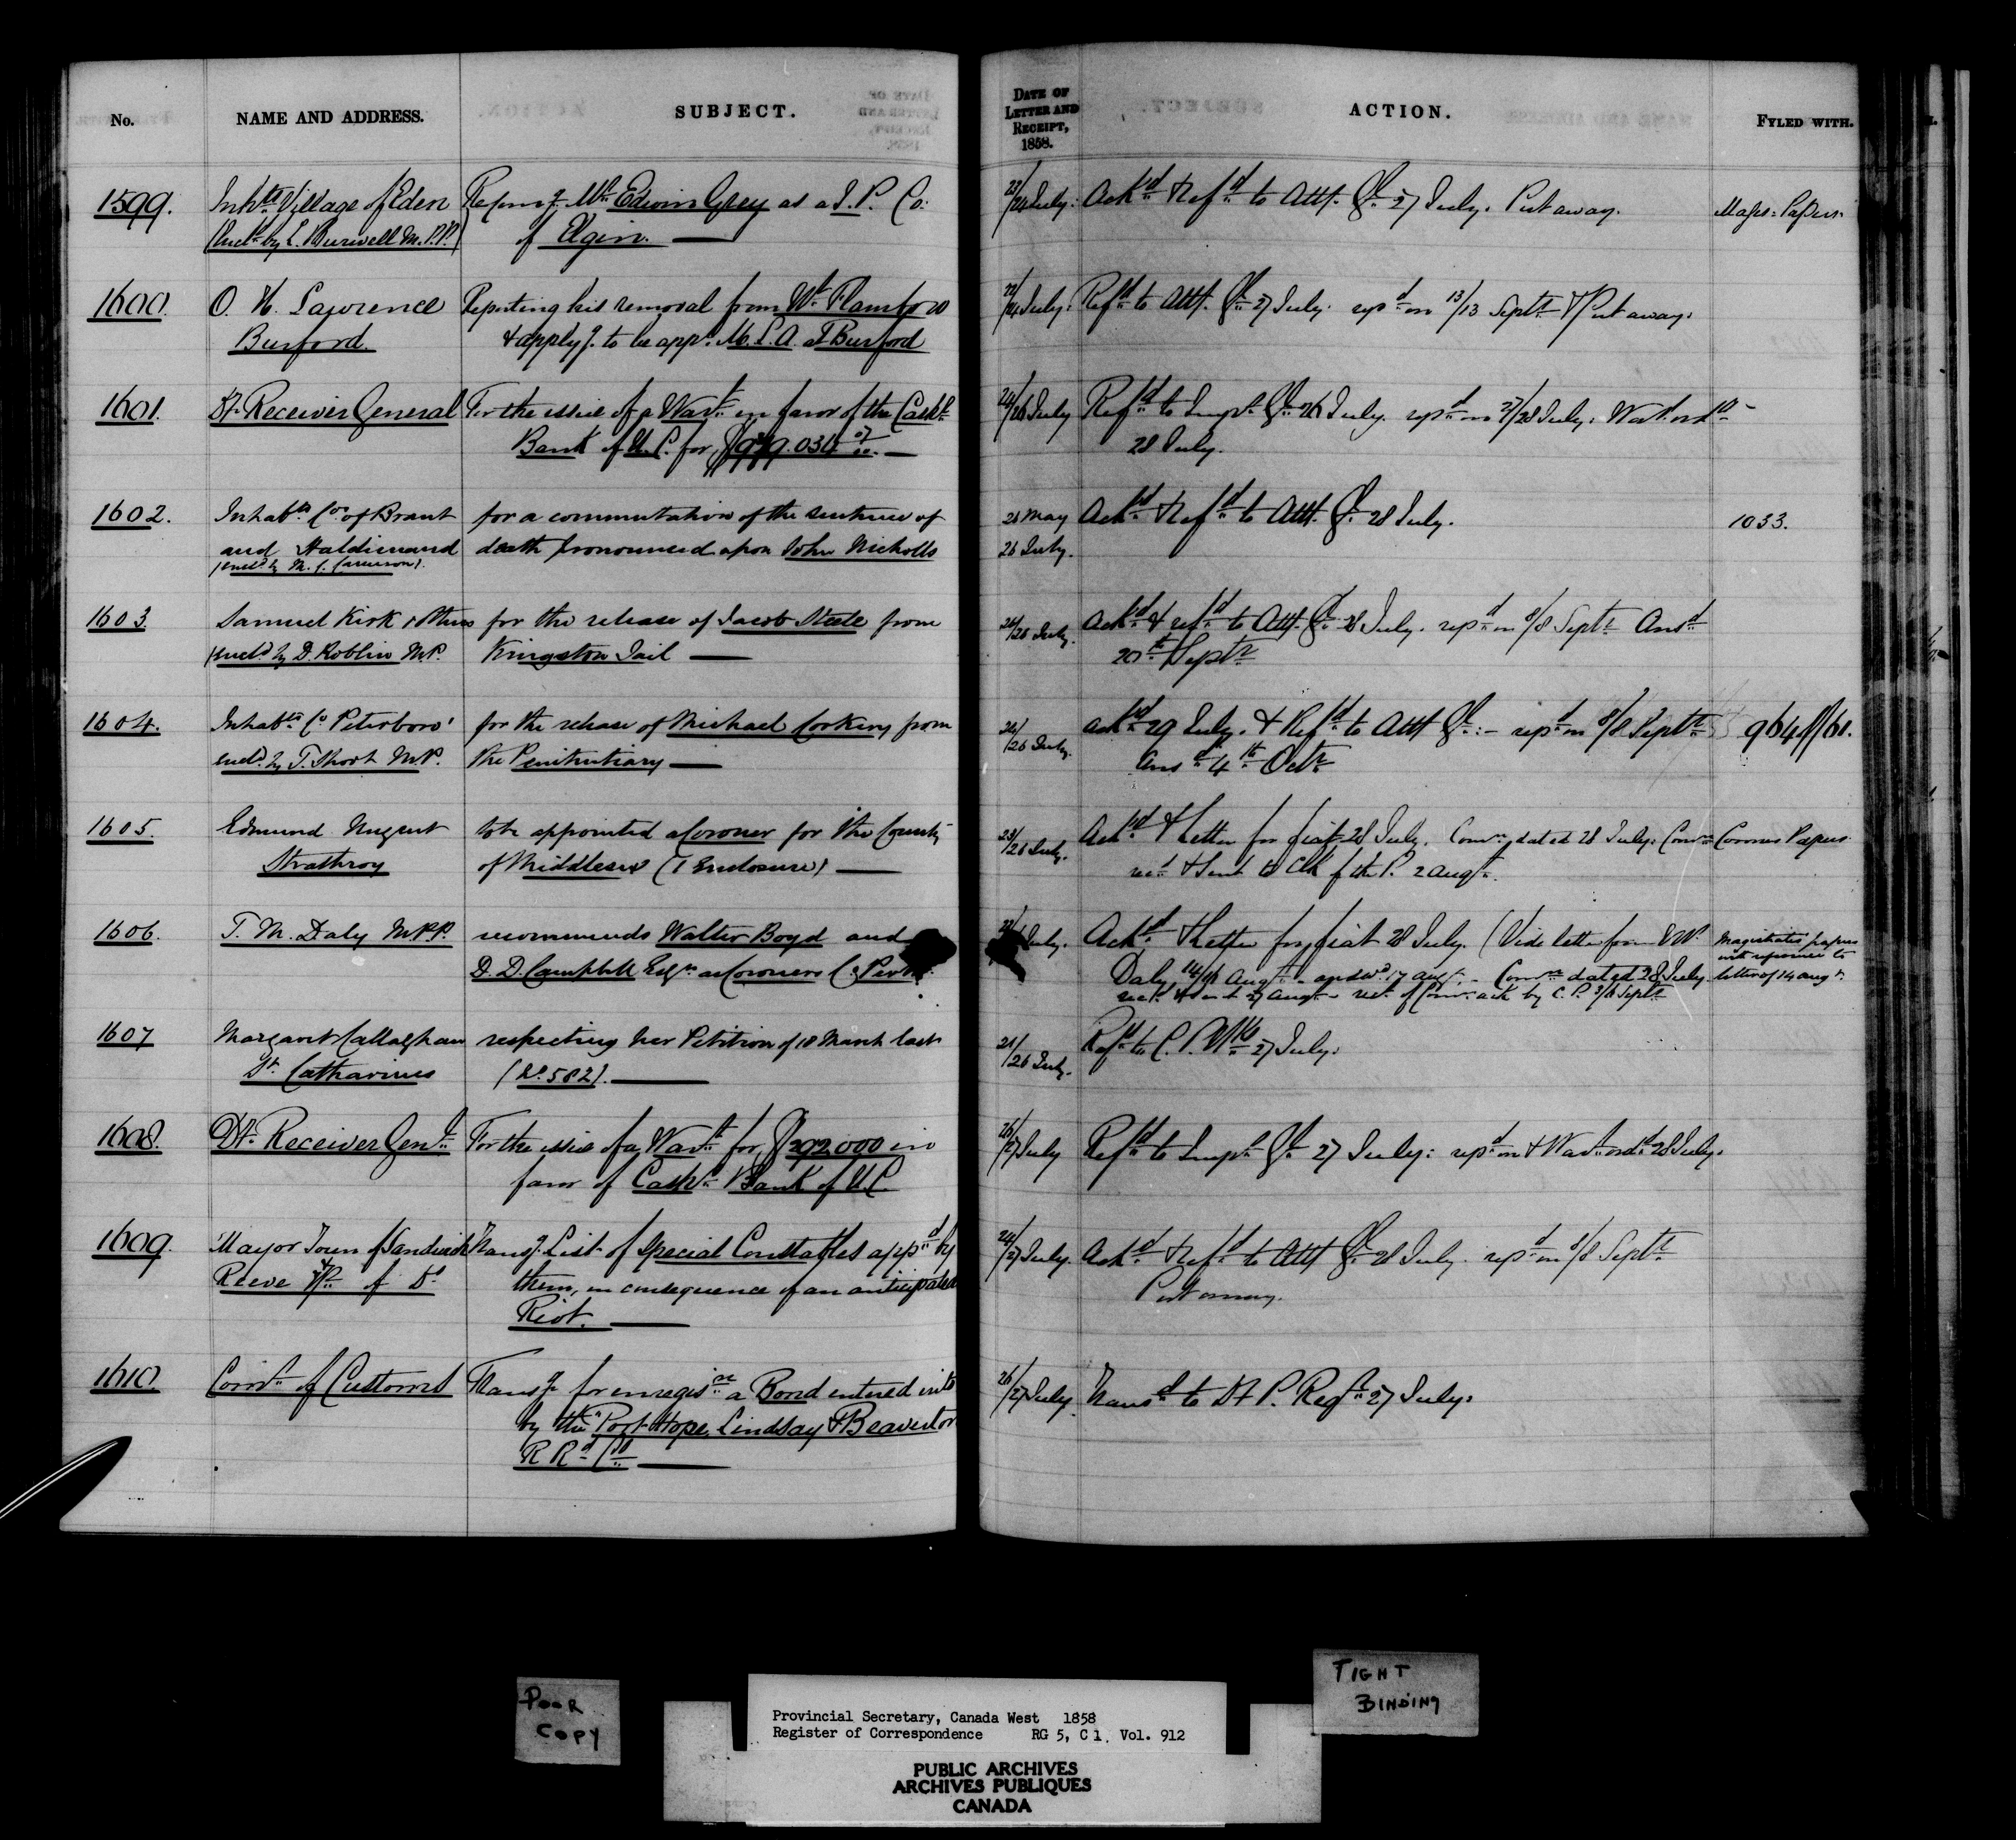 No.
NAME AND ADDRESS.
SUBJECT.
DATE OF LETTER AND RECEIPT, 1858.
ACTION.
FYLED WITH.
1599.
Inhts Village of Eden
(Encd by L. Burwell M.P.P.)
Mr Edwin Grey as a J.P. Co:
of Elgin.
23/24 July.
Ackd & Refd to Atty. Gl. 27 July. Put away.
Mags: Papers.
1600.
O. H. Lawrence
Burford.
Reporting his removal from Wt Flamboro
& applyg. to be appd. M.L.A. at Burford
22/24 July.
Refd to Atty. Gl. 27 July. repd on 13/13 Septr & Put away.
1601.
Dy. Receiver General
For the issue of a Wart in favor of the
Bank of U.C. for
24/26 July
Refd to Inspr. Gl. 26 July. repd on 27/28 July. Wart. ordd
28 July.
1602.
Inhabts Cos of Brant
and Haldimand
(encd by M. C. Cameron).
for a commutation of the sentence of
death pronounced upon John Nicholls
26 May
26 July.
Ackd & Refd to Atty. Gl. 28 July.
1033.
1603
Samuel Kirk & others
(encd by D. Roblin M.P.
for the release of Jacob Steele from
Kingston Jail
24/26 July.
Ackd & refd to Atty. Gl. 28 July. repd on 8/8 Septr Ansd
20th Septr
1604.
Inhabts Co Peterboro'
encd. by T. Short M.P.
for the release of Michael Corkery from
the Penitentiary
/26 July.
ackd 29 July. & Refd to Atty Gl:- repd on 8/8 Septr
Ansd 4th Octr
964/61.
1605.
Edmund Nugent
Strathroy
to be appointed a Coroner for the County
of Middlesex (1 Enclosure)
23/26 July.
Ackd & letter for fiat 28 July. Comn. dated 28 July. Comn
recd & sent to Clk of the P. 2 Augt.
Coroners Papers
1606.
T. M. Daly M.P.P.
recommends Walter Boyd and
D. D. Campbell Esqrs as Coroners Co Perth.
July.
Ackd & letter for fiat 28 July. (Vide letter from
Daly 14/16 Augt. - answd 17 Augt. - Comn dated 28 July
recd & sent 27 Augt - rect of Comn ack by C.P. 3/6 Septr
Magistrates papers
with reference to
letter of 14 Augt.
1607
Margaret Callaghan
St. Catharines
respecting her Petition of 18 March last
(No. 582).
21/26 July.
Refd to C. P. 27 July.
1608.
Dy. Receiver Genl.
For the issue of a Wart for $292,000 in
favor of Bank of U.C.
26/27 July
Refd to Inspr. Gl. 27 July: repd on & Wart ordd 28 July.
1609.
Mayor Town of Sandwich
Reeve of Do
Transg. List of Special Constables appd by
them, in consequence of an anticipated
Riot.
24/27 July.
Ackd & Refd to Atty Gl. 28 July. repd on 8/8 Septr
Put away.
1610.
Comr of Customs
Transg for enregisn a Bond entered into
by the Port Hope, Lindsay & Beaverton
R Rd Co
26/27 July.
Transd to Dy P. Regr 27 July.
POOR
COPY
TIGHT
BINDING
Provincial Secretary, Canada West 1858
Register of Correspondence RG 5, C 1, Vol. 912
PUBLIC ARCHIVES
ARCHIVES PUBLIQUES
CANADA